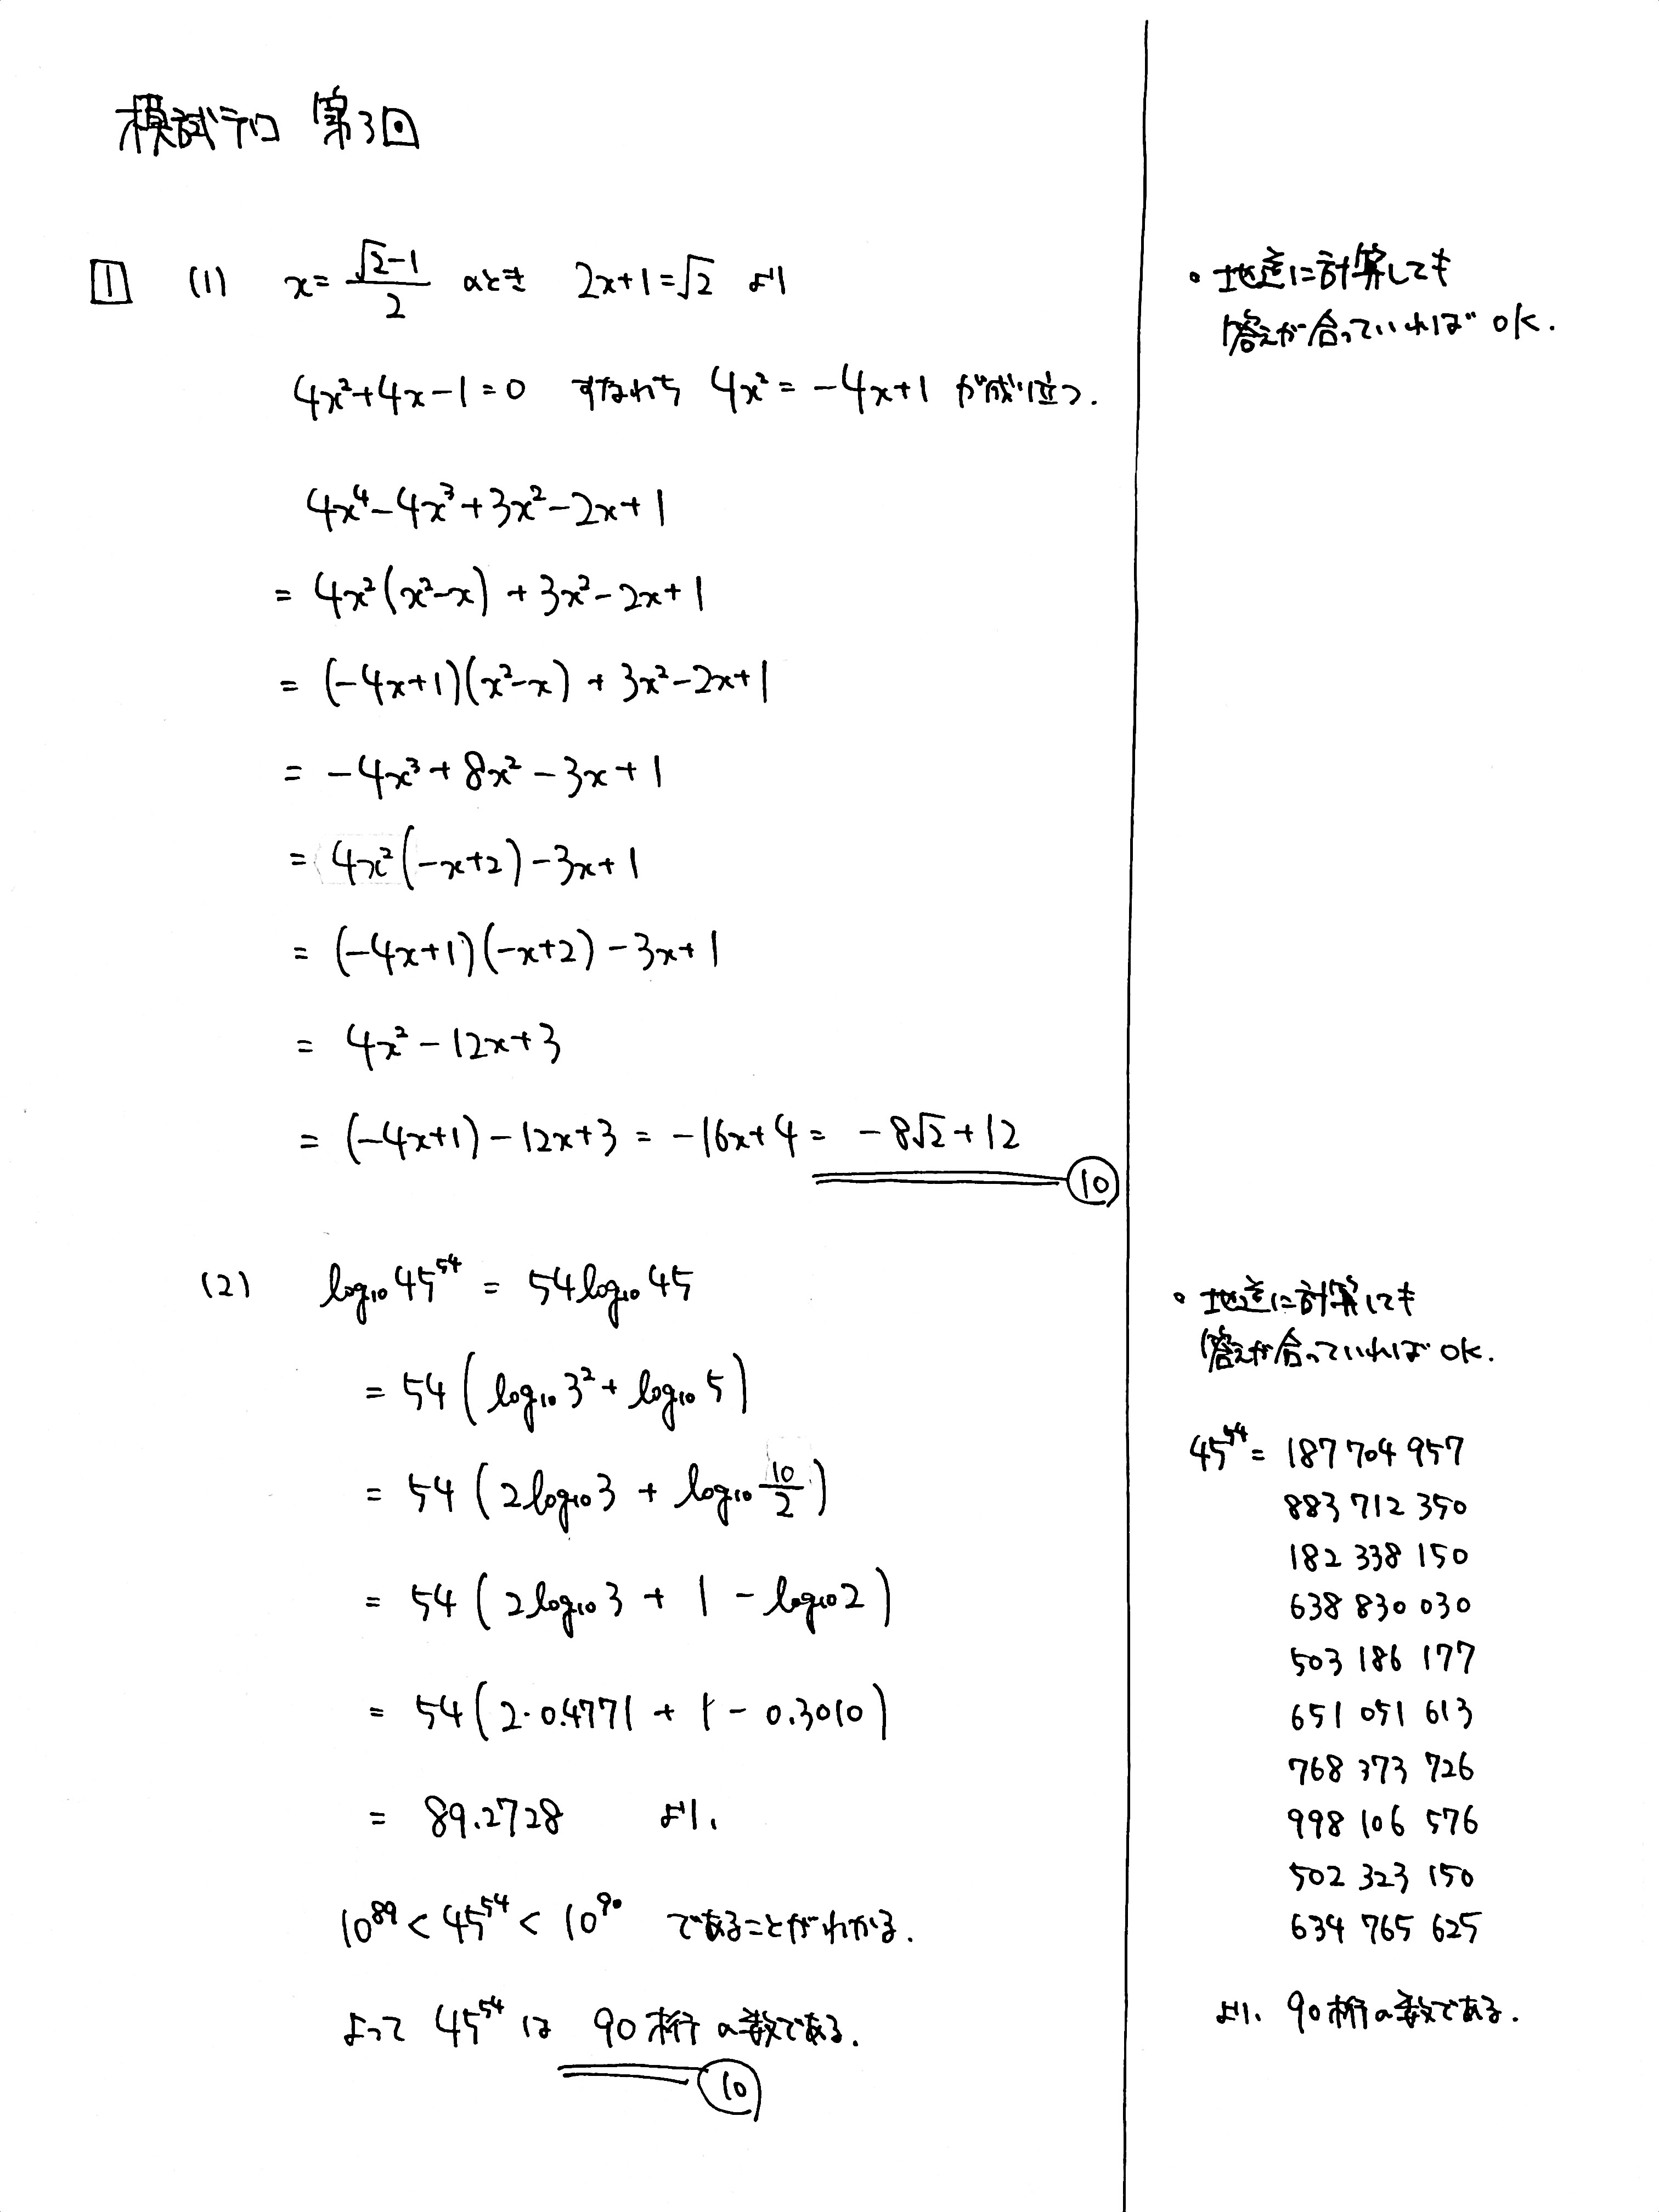 模試テロ 第3回
1 (1) x=(√2-1)/2 のとき 2x+1=√2 より
4x²+4x-1=0 すなわち 4x²=-4x+1 が成り立つ.
4x⁴-4x³+3x²-2x+1
= 4x²(x²-x)+3x²-2x+1
= (-4x+1)(x²-x)+3x²-2x+1
= -4x³+8x²-3x+1
= 4x²(-x+2)-3x+1
= (-4x+1)(-x+2)-3x+1
= 4x²-12x+3
= (-4x+1)-12x+3 = -16x+4 = -8√2+12
⑩
・地道に計算しても
答えが合っていれば OK.
(2) log₁₀45⁵⁴ = 54log₁₀45
= 54(log₁₀3²+log₁₀5)
= 54(2log₁₀3+log₁₀10/2)
= 54(2log₁₀3+1-log₁₀2)
= 54(2·0.4771+1-0.3010)
= 89.2728 より、
10⁸⁹<45⁵⁴<10⁹⁰ であることがわかる.
よって 45⁵⁴ は 90桁の数である.
⑩
・地道に計算しても
答えが合っていれば OK.
45⁵⁴= 187 704 957
883 712 350
182 338 150
638 830 030
503 186 177
651 051 613
768 373 726
998 106 576
502 323 150
634 765 625
より、90桁の数である.